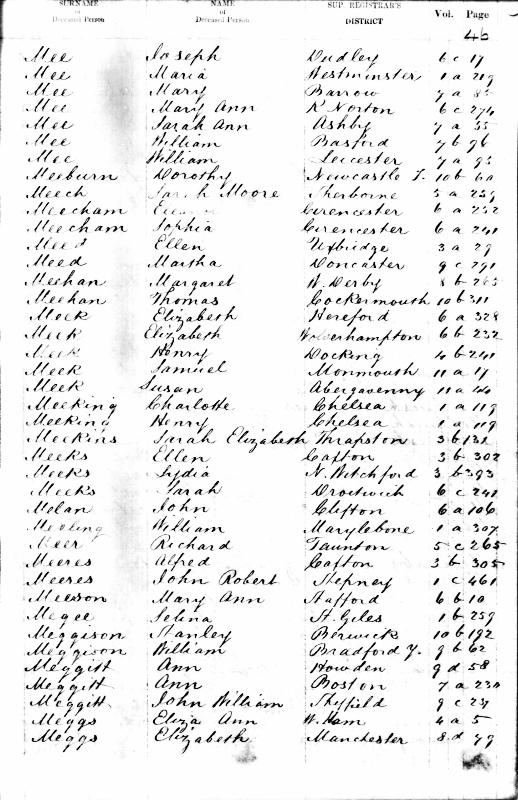 SURNAME OF Deceased Person NAME OF Deceased Person SUP. REGISTRAR'S DISTRICT Vol. Page
46
Mee Joseph Dudley 6 c 17
Mee Maria Westminster 1 a 219
Mee Mary Barrow 7 a 85
Mee Mary Ann K Norton 6 c 274
Mee Sarah Ann Ashby 7 a 55
Mee William Basford 7 b 96
Mee William Leicester 7 a 95
Meeburn Dorothy Newcastle T. 10 b 60
Meech Sarah Moore Sherborne 5 a 239
Meecham Cirencester 6 a 232
Meecham Sophia Cirencester 6 a 241
Meed Ellen Uxbridge 3 a 29
Meed Martha Doncaster 9 c 291
Meehan Margaret W. Derby 8 b 265
Meehan Thomas Cockermouth 10 b 311
Meek Elizabeth Hereford 6 a 328
Meek Elizabeth Wolverhampton 6 b 232
Meek Henry Docking 4 b 241
Meek Samuel Monmouth 11 a 17
Meek Susan Abergavenny 11 a 44
Meeking Charlotte Chelsea 1 a 119
Meeking Henry Chelsea 1 a 119
Meekins Sarah Elizabeth Thrapston 3 b 132
Meeks Ellen Caxton 3 b 302
Meeks Lydia N. Witchford 3 b 393
Meeks Sarah Droitwich 6 c 241
Melan John Clifton 6 a 106
William Marylebone 1 a 307
Meer Richard Taunton 5 c 265
Meeres Alfred Caxton 3 b 305
Meeres John Robert Stepney 1 c 461
Meeson Mary Ann Stafford 6 b 10
Megee Selina St. Giles 1 b 259
Meggison Stanley Berwick 10 b 192
Meggison William Bradford Y. 9 b 62
Meggitt Ann Howden 9 d 58
Meggitt Ann Boston 7 a 234
Meggitt John William Sheffield 9 c 237
Meggs Eliza Ann W. Ham 4 a 5
Meggs Elizabeth Manchester 8 d 79